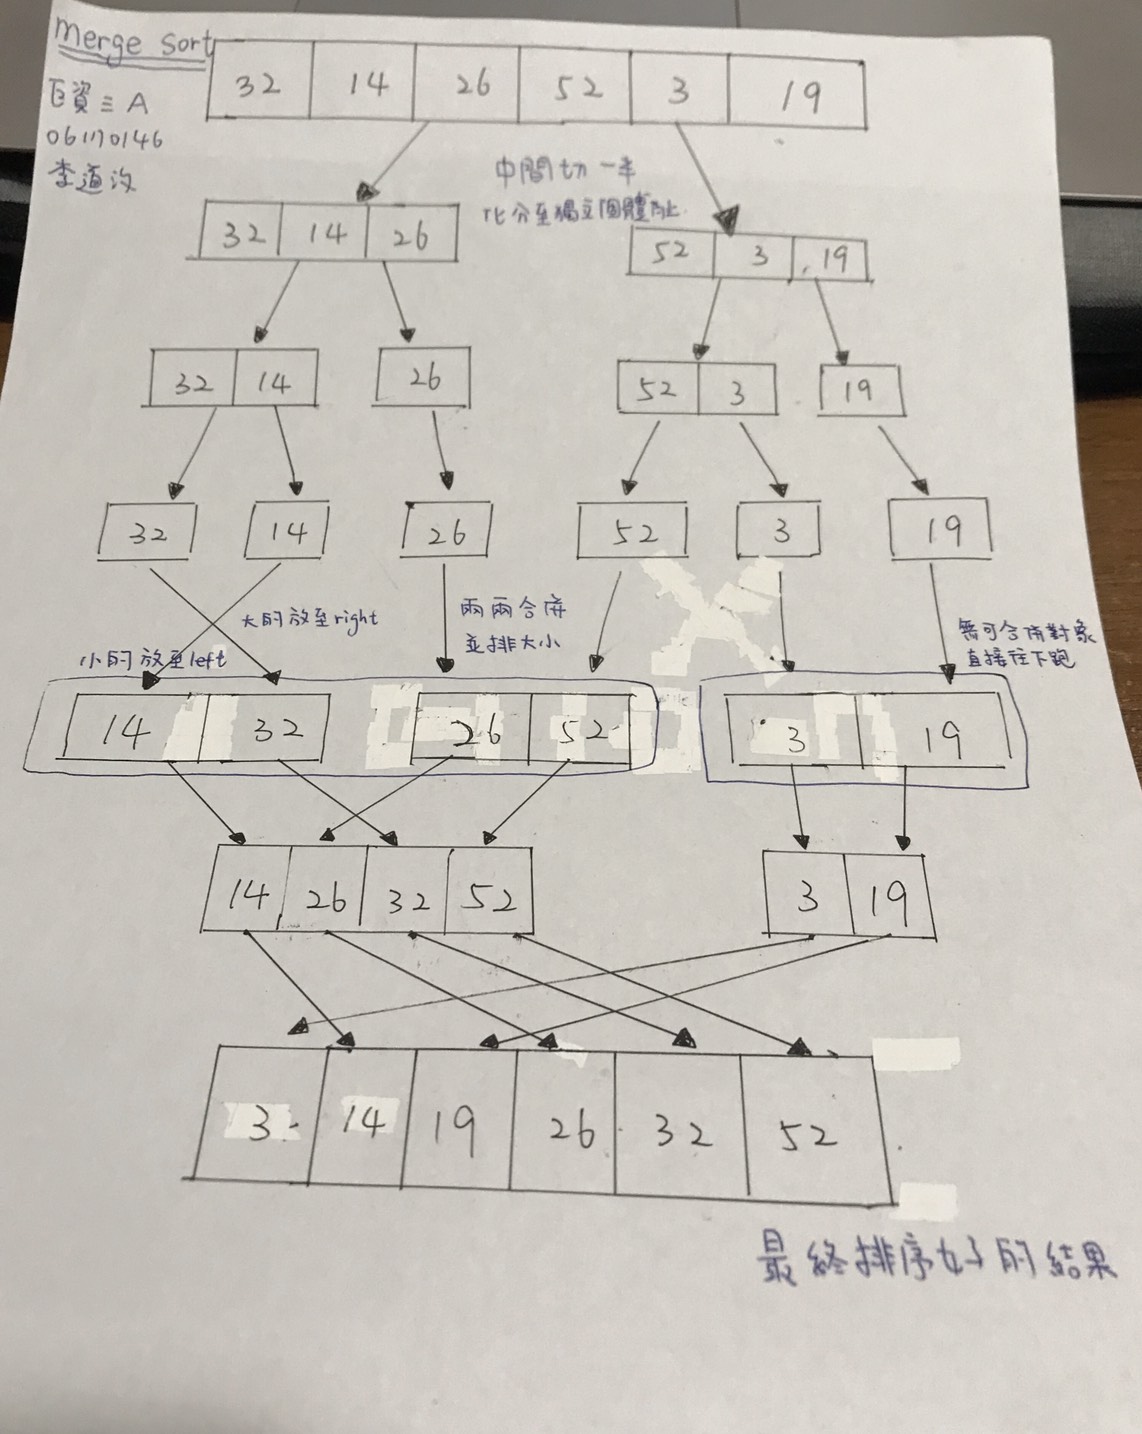 merge sort
32 14 26 52 3 19
巨資三A
06170146
中間切一半
化分至獨立個體為止
32 14 26
52 3 19
32 14
26
52 3
19
32
14
26
52
3
19
大的放至right
小的放至left
兩兩合併
並排大小
無可合併對象
直接往下跑
14 32
26 52
3 19
14 26 32 52
3 19
3 14 19 26 32 52
最終排序好的結果